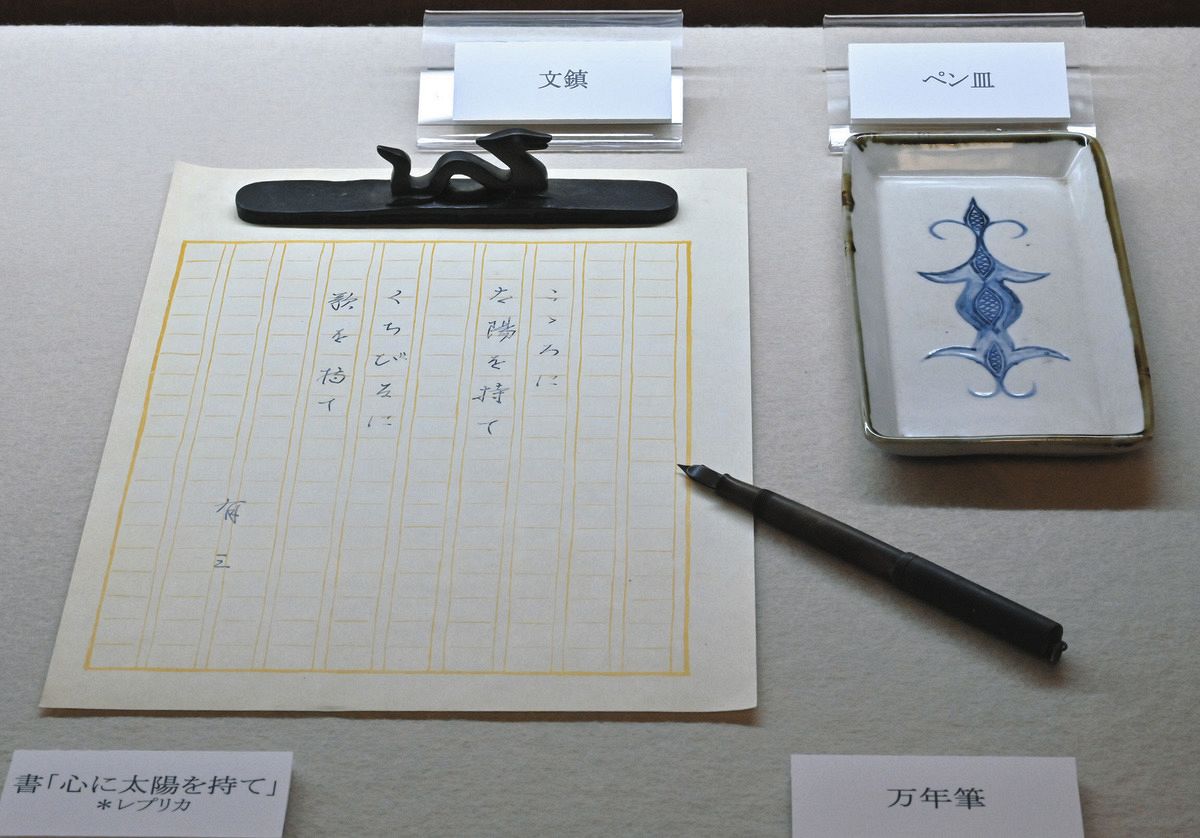 文鎮
ペン皿
こゝろに
太陽を持て
くちびるに
歌を持て
有三
書「心に太陽を持て」
＊レプリカ
万年筆